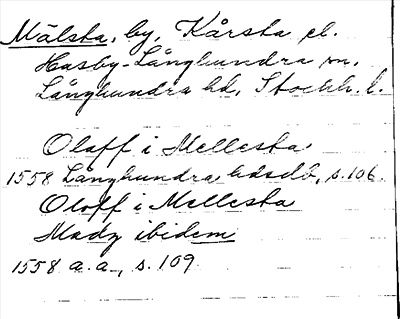 Mälsta, by, Kårsta el.
Husby-Långhundra sn,
Långhundra hd, Stockh. l.
Olaff i Mellesta
1558 Långhundra hdsdb, s. 106.
Oloff i Mellesta
Madz ibidem
1558 a.a., s. 109.